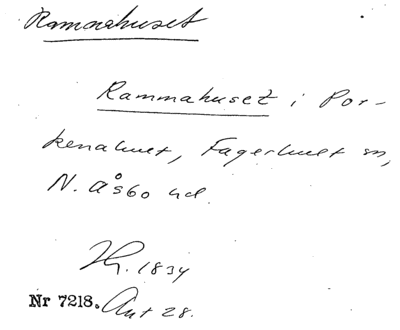 Rammahuset
Rammahuset i Por-
kenahult, Fagerhult sn,
N. Åsbo hd.
Hf. 1834
Nr 7218. Ant 28.